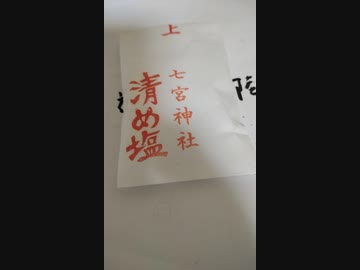 上
七宮神社
清め塩